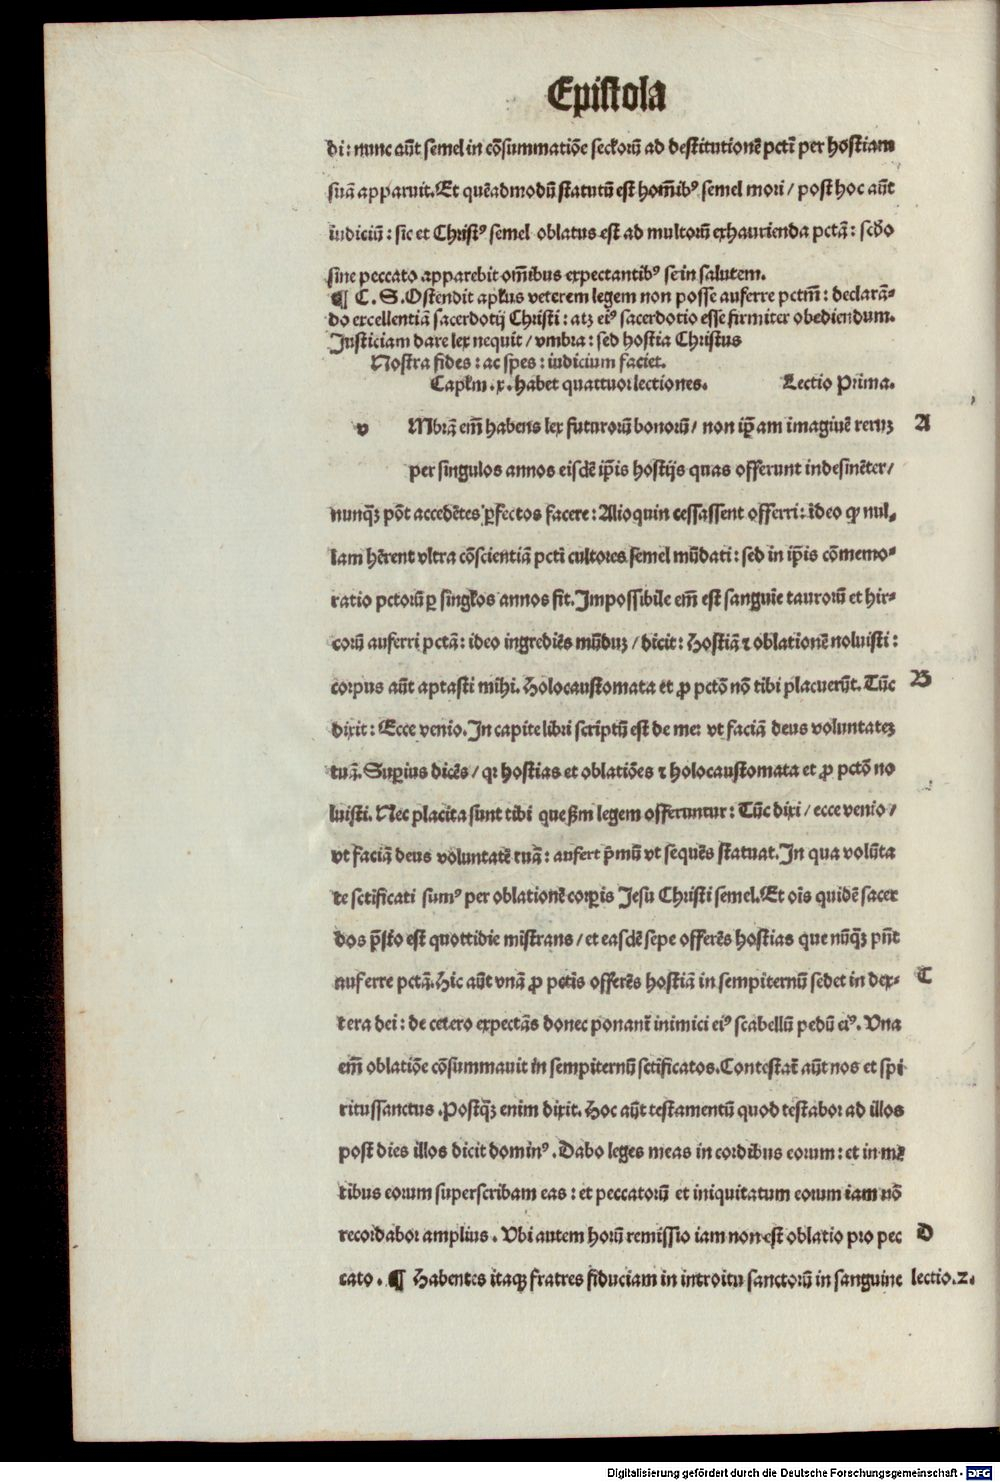 Epistola
di: nunc aūt semel in cōsummatiōe seclorū ad destitutionē pctī per hostiam
suā apparuit. Et quēadmodū statutū est homībꝰ semel mori / post hoc aūt
iudiciū: sic et Christꝰ semel oblatus est ad multorū exhaurienda pctā: scdo
sine peccato apparebit omībus expectantibꝰ se in salutem.
¶ C. S. Ostendit aplus veterem legem non posse auferre pctm̄: declarā-
do excellentiā sacerdotij Christi: atqꝫ eiꝰ sacerdotio esse firmiter obediendum.
Justiciam dare lex nequit / vmbra: sed hostia Christus
Nostra fides: ac spes: iudicium faciet.
Caplm. x. habet quattuor lectiones. Lectio Prima.
v Mbrā em̄ habens lex futurorū bonorū / non ip̄am imaginē rerūꝫ A
per singulos annos eisdē ip̄is hostijs quas offerunt indesinēter /
nunqꝫ pōt accedētes ꝑfectos facere: Alioquin cessassent offerri: ideo ꝙ nul-
lam hr̄ent vltra cōscientiā pctī cultores semel mūdati: sed in ip̄is cōmemo-
ratio pctorū ꝑ singlos annos fit. Impossibile em̄ est sanguīe taurorū et hir-
corū auferri pctā: ideo ingrediēs mūduꝫ / dicit: Hostiā ⁊ oblationē noluisti:
corpus aūt aptasti mihi. Holocaustomata et ꝓ pctō nō tibi placuerūt. Tūc B
dixit: Ecce venio. In capite libri scriptū est de me: vt faciā deus voluntateꝫ
tuā. Superius dicēs / qꝛ hostias et oblatiōes ⁊ holocaustomata et ꝓ pctō no
luisti. Nec placita sunt tibi que ẜm legem offeruntur: Tūc dixi / ecce venio /
vt faciā deus voluntatē tuā: aufert p̄mū vt sequēs statuat. In qua volūta
te sctificati sumꝰ per oblationē corpis Jesu Christi semel. Et ois quidē sacer
dos p̄sto est quottidie mīstrans / et easdē sepe offerēs hostias que nūqꝫ pn̄t
auferre pctā. Hic aūt vnā ꝓ pctis offerēs hostiā in sempiternū sedet in dex- C
tera dei: de cetero expectās donec ponant̄ inimici eiꝰ scabellū pedū eiꝰ. Vna
em̄ oblatiōe cōsummauit in sempiternū sctificatos. Contestat̄ aūt nos et spi
ritussanctus. Postqꝫ enim dixit. Hoc aūt testamentū quod testabor ad illos
post dies illos dicit dominꝰ. Dabo leges meas in cordibus eorum: et in mē
tibus eorum superscribam eas: et peccatorū et iniquitatum eorum iam nō
recordabor amplius. Vbi autem horū remissio iam non est oblatio pro pec D
cato. ¶ Habentes itaqꝫ fratres fiduciam in introitu sanctorū in sanguine lectio. 2.
Digitalisierung gefördert durch die Deutsche Forschungsgemeinschaft - DFG